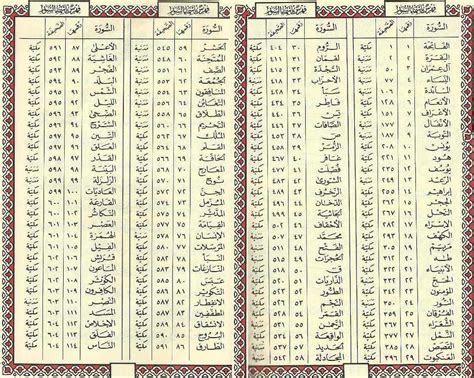 السورة رقمها الصفحة
الفاتحة ١ ١ مكية
البقرة ٢ ٢ مدنية
آل عمران ٣ ٥٠ مدنية
النساء ٤ ٧٧ مدنية
المائدة ٥ ١٠٦ مدنية
الأنعام ٦ ١٢٨ مكية
الأعراف ٧ ١٥١ مكية
الأنفال ٨ ١٧٧ مدنية
التوبة ٩ ١٨٧ مدنية
يونس ١٠ ٢٠٨ مكية
هود ١١ ٢٢١ مكية
يوسف ١٢ ٢٣٥ مكية
الرعد ١٣ ٢٤٩ مدنية
إبراهيم ١٤ ٢٥٥ مكية
الحجر ١٥ ٢٦٢ مكية
النحل ١٦ ٢٦٧ مكية
الإسراء ١٧ ٢٨٢ مكية
الكهف ١٨ ٢٩٣ مكية
مريم ١٩ ٣٠٥ مكية
طه ٢٠ ٣١٢ مكية
الأنبياء ٢١ ٣٢٢ مكية
الحج ٢٢ ٣٣٢ مدنية
المؤمنون ٢٣ ٣٤٢ مكية
النور ٢٤ ٣٥٠ مدنية
الفرقان ٢٥ ٣٥٩ مكية
الشعراء ٢٦ ٣٦٧ مكية
النمل ٢٧ ٣٧٧ مكية
القصص ٢٨ ٣٨٥ مكية
العنكبوت ٢٩ ٣٩٦ مكية
السورة رقمها الصفحة
الروم ٣٠ ٤٠٤ مكية
لقمان ٣١ ٤١١ مكية
السجدة ٣٢ ٤١٥ مكية
الأحزاب ٣٣ ٤١٨ مدنية
سبأ ٣٤ ٤٢٨ مكية
فاطر ٣٥ ٤٣٤ مكية
يس ٣٦ ٤٤٠ مكية
الصافات ٣٧ ٤٤٦ مكية
ص ٣٨ ٤٥٣ مكية
الزمر ٣٩ ٤٥٨ مكية
غافر ٤٠ ٤٦٧ مكية
فصلت ٤١ ٤٧٧ مكية
الشورى ٤٢ ٤٨٣ مكية
الزخرف ٤٣ ٤٨٩ مكية
الدخان ٤٤ ٤٩٦ مكية
الجاثية ٤٥ ٤٩٩ مكية
الأحقاف ٤٦ ٥٠٢ مكية
محمد ٤٧ ٥٠٧ مدنية
الفتح ٤٨ ٥١١ مدنية
الحجرات ٤٩ ٥١٥ مدنية
ق ٥٠ ٥١٨ مكية
الذاريات ٥١ ٥٢٠ مكية
الطور ٥٢ ٥٢٣ مكية
النجم ٥٣ ٥٢٦ مكية
القمر ٥٤ ٥٢٨ مكية
الرحمن ٥٥ ٥٣١ مدنية
الواقعة ٥٦ ٥٣٤ مكية
الحديد ٥٧ ٥٣٧ مدنية
المجادلة ٥٨ ٥٤٢ مدنية
السورة رقمها الصفحة
الحشر ٥٩ ٥٤٥ مدنية
الممتحنة ٦٠ ٥٤٩ مدنية
الصف ٦١ ٥٥١ مدنية
الجمعة ٦٢ ٥٥٣ مدنية
المنافقون ٦٣ ٥٥٤ مدنية
التغابن ٦٤ ٥٥٦ مدنية
الطلاق ٦٥ ٥٥٨ مدنية
التحريم ٦٦ ٥٦٠ مدنية
الملك ٦٧ ٥٦٢ مكية
القلم ٦٨ ٥٦٤ مكية
الحاقة ٦٩ ٥٦٦ مكية
المعارج ٧٠ ٥٦٨ مكية
نوح ٧١ ٥٧٠ مكية
الجن ٧٢ ٥٧٢ مكية
المزمل ٧٣ ٥٧٤ مكية
المدثر ٧٤ ٥٧٥ مكية
القيامة ٧٥ ٥٧٧ مكية
الإنسان ٧٦ ٥٧٨ مدنية
المرسلات ٧٧ ٥٨٠ مكية
النبأ ٧٨ ٥٨٢ مكية
النازعات ٧٩ ٥٨٣ مكية
عبس ٨٠ ٥٨٥ مكية
التكوير ٨١ ٥٨٦ مكية
الانفطار ٨٢ ٥٨٧ مكية
المطففين ٨٣ ٥٨٧ مكية
الانشقاق ٨٤ ٥٨٩ مكية
البروج ٨٥ ٥٩٠ مكية
الطارق ٨٦ ٥٩١ مكية
السورة رقمها الصفحة
الأعلى ٨٧ ٥٩١ مكية
الغاشية ٨٨ ٥٩٢ مكية
الفجر ٨٩ ٥٩٣ مكية
البلد ٩٠ ٥٩٤ مكية
الشمس ٩١ ٥٩٥ مكية
الليل ٩٢ ٥٩٥ مكية
الضحى ٩٣ ٥٩٦ مكية
الشرح ٩٤ ٥٩٦ مكية
التين ٩٥ ٥٩٧ مكية
العلق ٩٦ ٥٩٧ مكية
القدر ٩٧ ٥٩٨ مكية
البينة ٩٨ ٥٩٨ مدنية
الزلزلة ٩٩ ٥٩٩ مدنية
العاديات ١٠٠ ٥٩٩ مكية
القارعة ١٠١ ٦٠٠ مكية
التكاثر ١٠٢ ٦٠٠ مكية
العصر ١٠٣ ٦٠١ مكية
الهمزة ١٠٤ ٦٠١ مكية
الفيل ١٠٥ ٦٠١ مكية
قريش ١٠٦ ٦٠٢ مكية
الماعون ١٠٧ ٦٠٢ مكية
الكوثر ١٠٨ ٦٠٢ مكية
الكافرون ١٠٩ ٦٠٣ مكية
النصر ١١٠ ٦٠٣ مدنية
المسد ١١١ ٦٠٣ مكية
الإخلاص ١١٢ ٦٠٤ مكية
الفلق ١١٣ ٦٠٤ مكية
الناس ١١٤ ٦٠٤ مكية